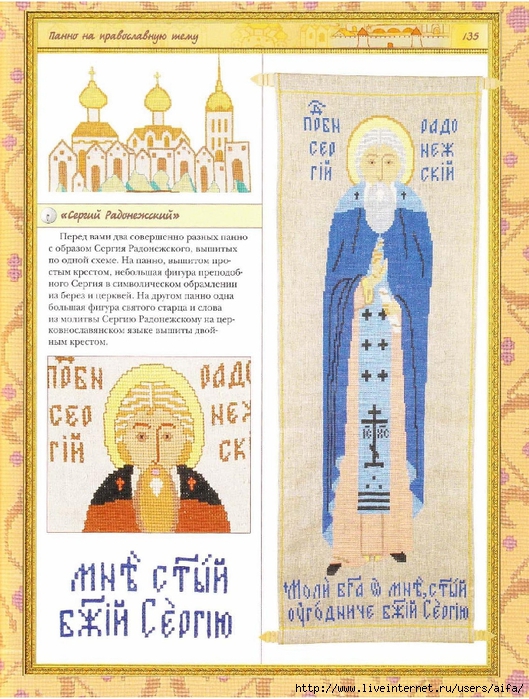 Панно на православную тему
135
«Сергий Радонежский»
Перед вами два совершенно разных панно
с образом Сергия Радонежского, вышитых
по одной схеме. На панно, вышитом про-
стым крестом, небольшая фигура преподоб-
ного Сергия в символическом обрамлении
из берез и церквей. На другом панно одна
большая фигура святого старца и слова
из молитвы Сергию Радонежскому на цер-
ковнославянском языке вышиты двой-
ным крестом.
ПРБН РАДО
СЕР НЕЖ
ГІЙ СК
МНѢ СТЫЙ
БЖІЙ СЕРГІЮ
ПРБН РАДО
СЕР НЕЖ
ГІЙ СКІЙ
ІС ХС
Моли БГА Ѡ МНѢ, СТЫЙ
ОУГОДНИЧЕ БЖІЙ СЕРГІЮ
http://www.liveinternet.ru/users/aifa/